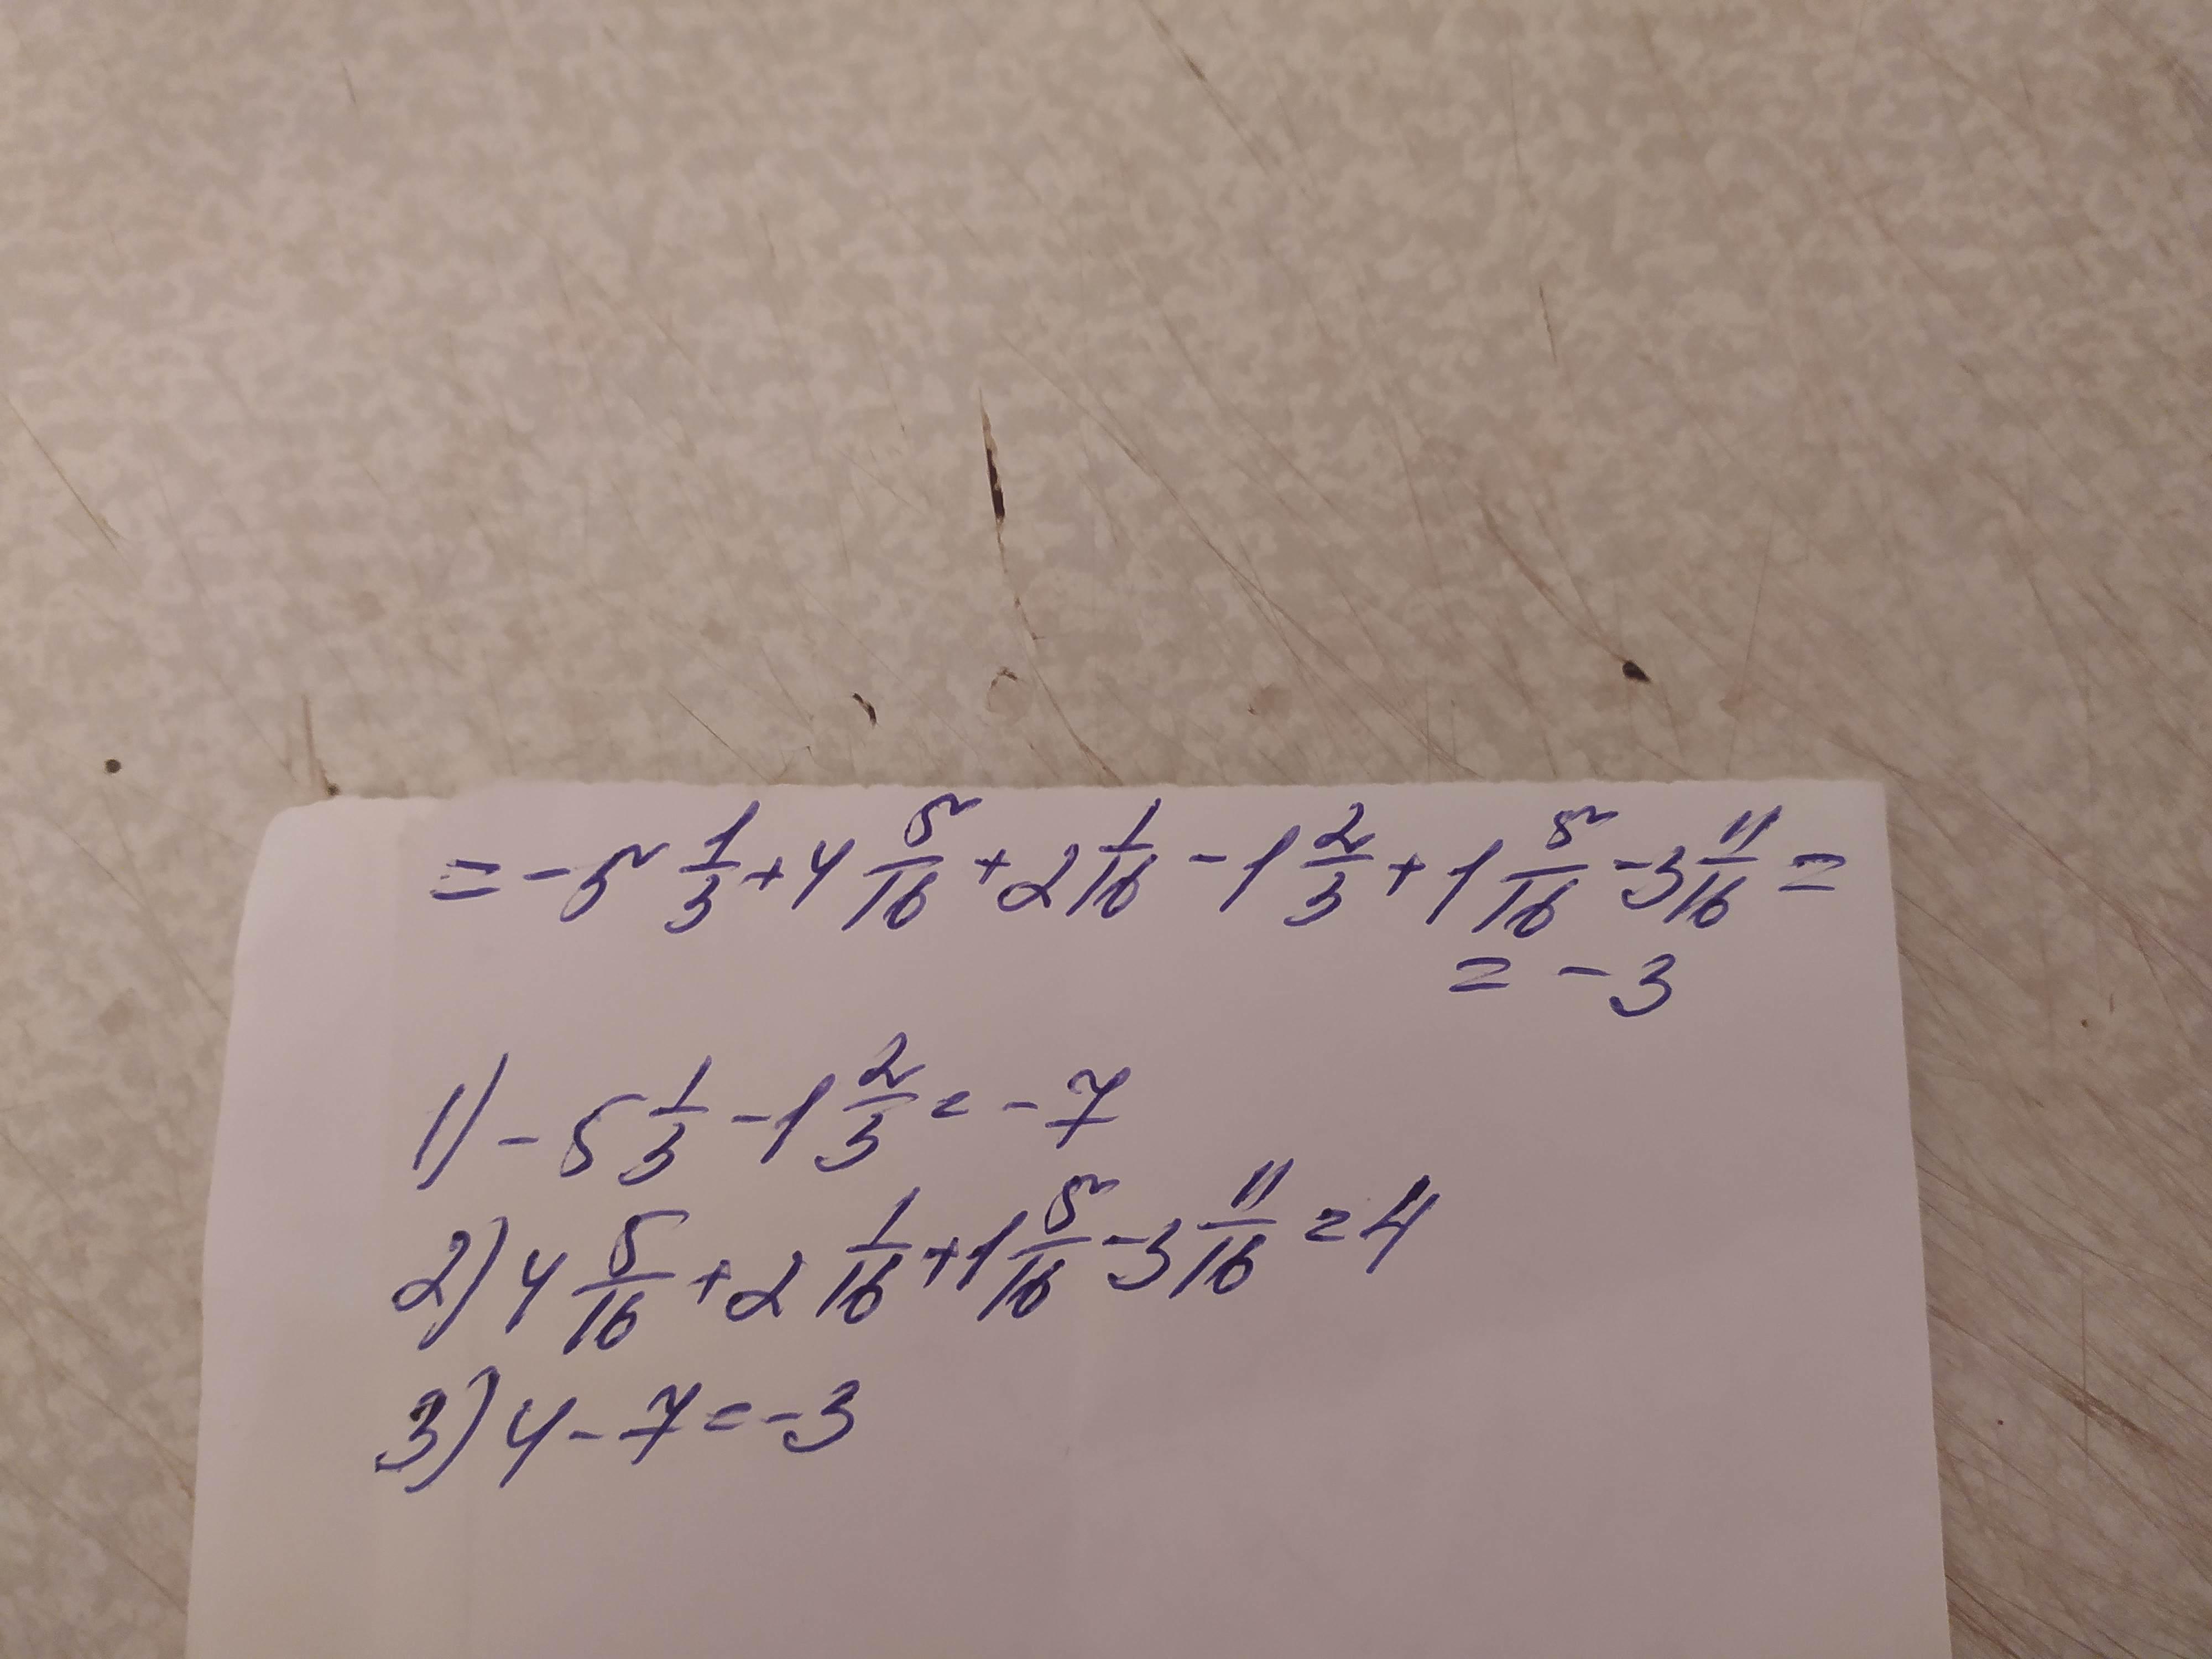 = - 5 1/3 + 4 5/16 + 2 1/16 - 1 2/3 + 1 5/16 - 3 11/16 =
= - 3
1) - 5 1/3 - 1 2/3 = - 7
2) 4 5/16 + 2 1/16 + 1 5/16 - 3 11/16 = 4
3) 4 - 7 = - 3